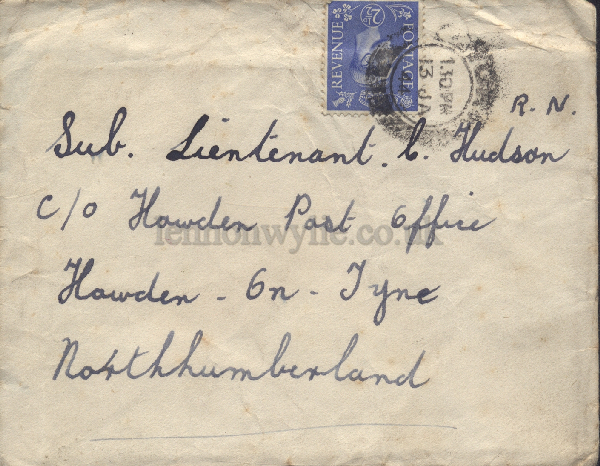 REVENUE 2½D POSTAGE
1.30 PM
13 JA
R. N.
Sub. Lientenant. C. Hudson
C/O Howden Post Office
lennonwylie.co.uk
Howden - On - Tyne
Northhumberland